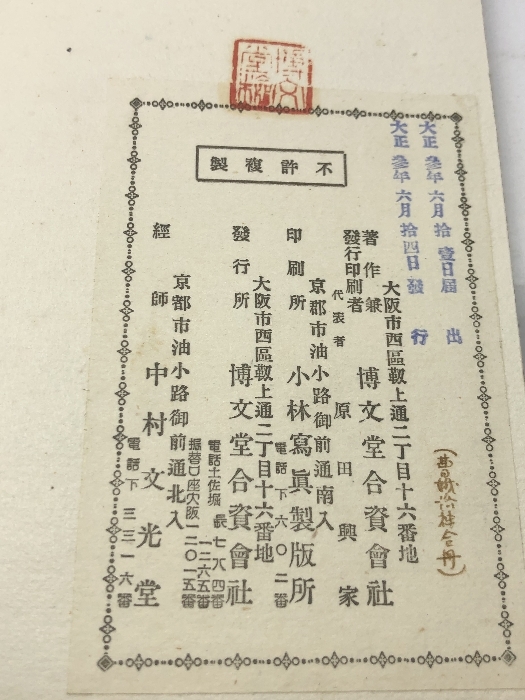 不許複製
大正參年六月拾壹日屆出
大正參年六月拾四日發行
大阪市西區靱上通二丁目十六番地
著作兼發行印刷者
博文堂合資會社
代表者 原田興家
京都市油小路御前通南入
印刷所 小林寫眞製版所
電話下六〇二番
大阪市西區靱上通二丁目十六番地
發行所 博文堂合資會社
電話土佐堀 長七八四番
一二六五番
振替口座大阪一二〇一五番
京都市油小路御前通北入
經師 中村文光堂
電話下三三一六番